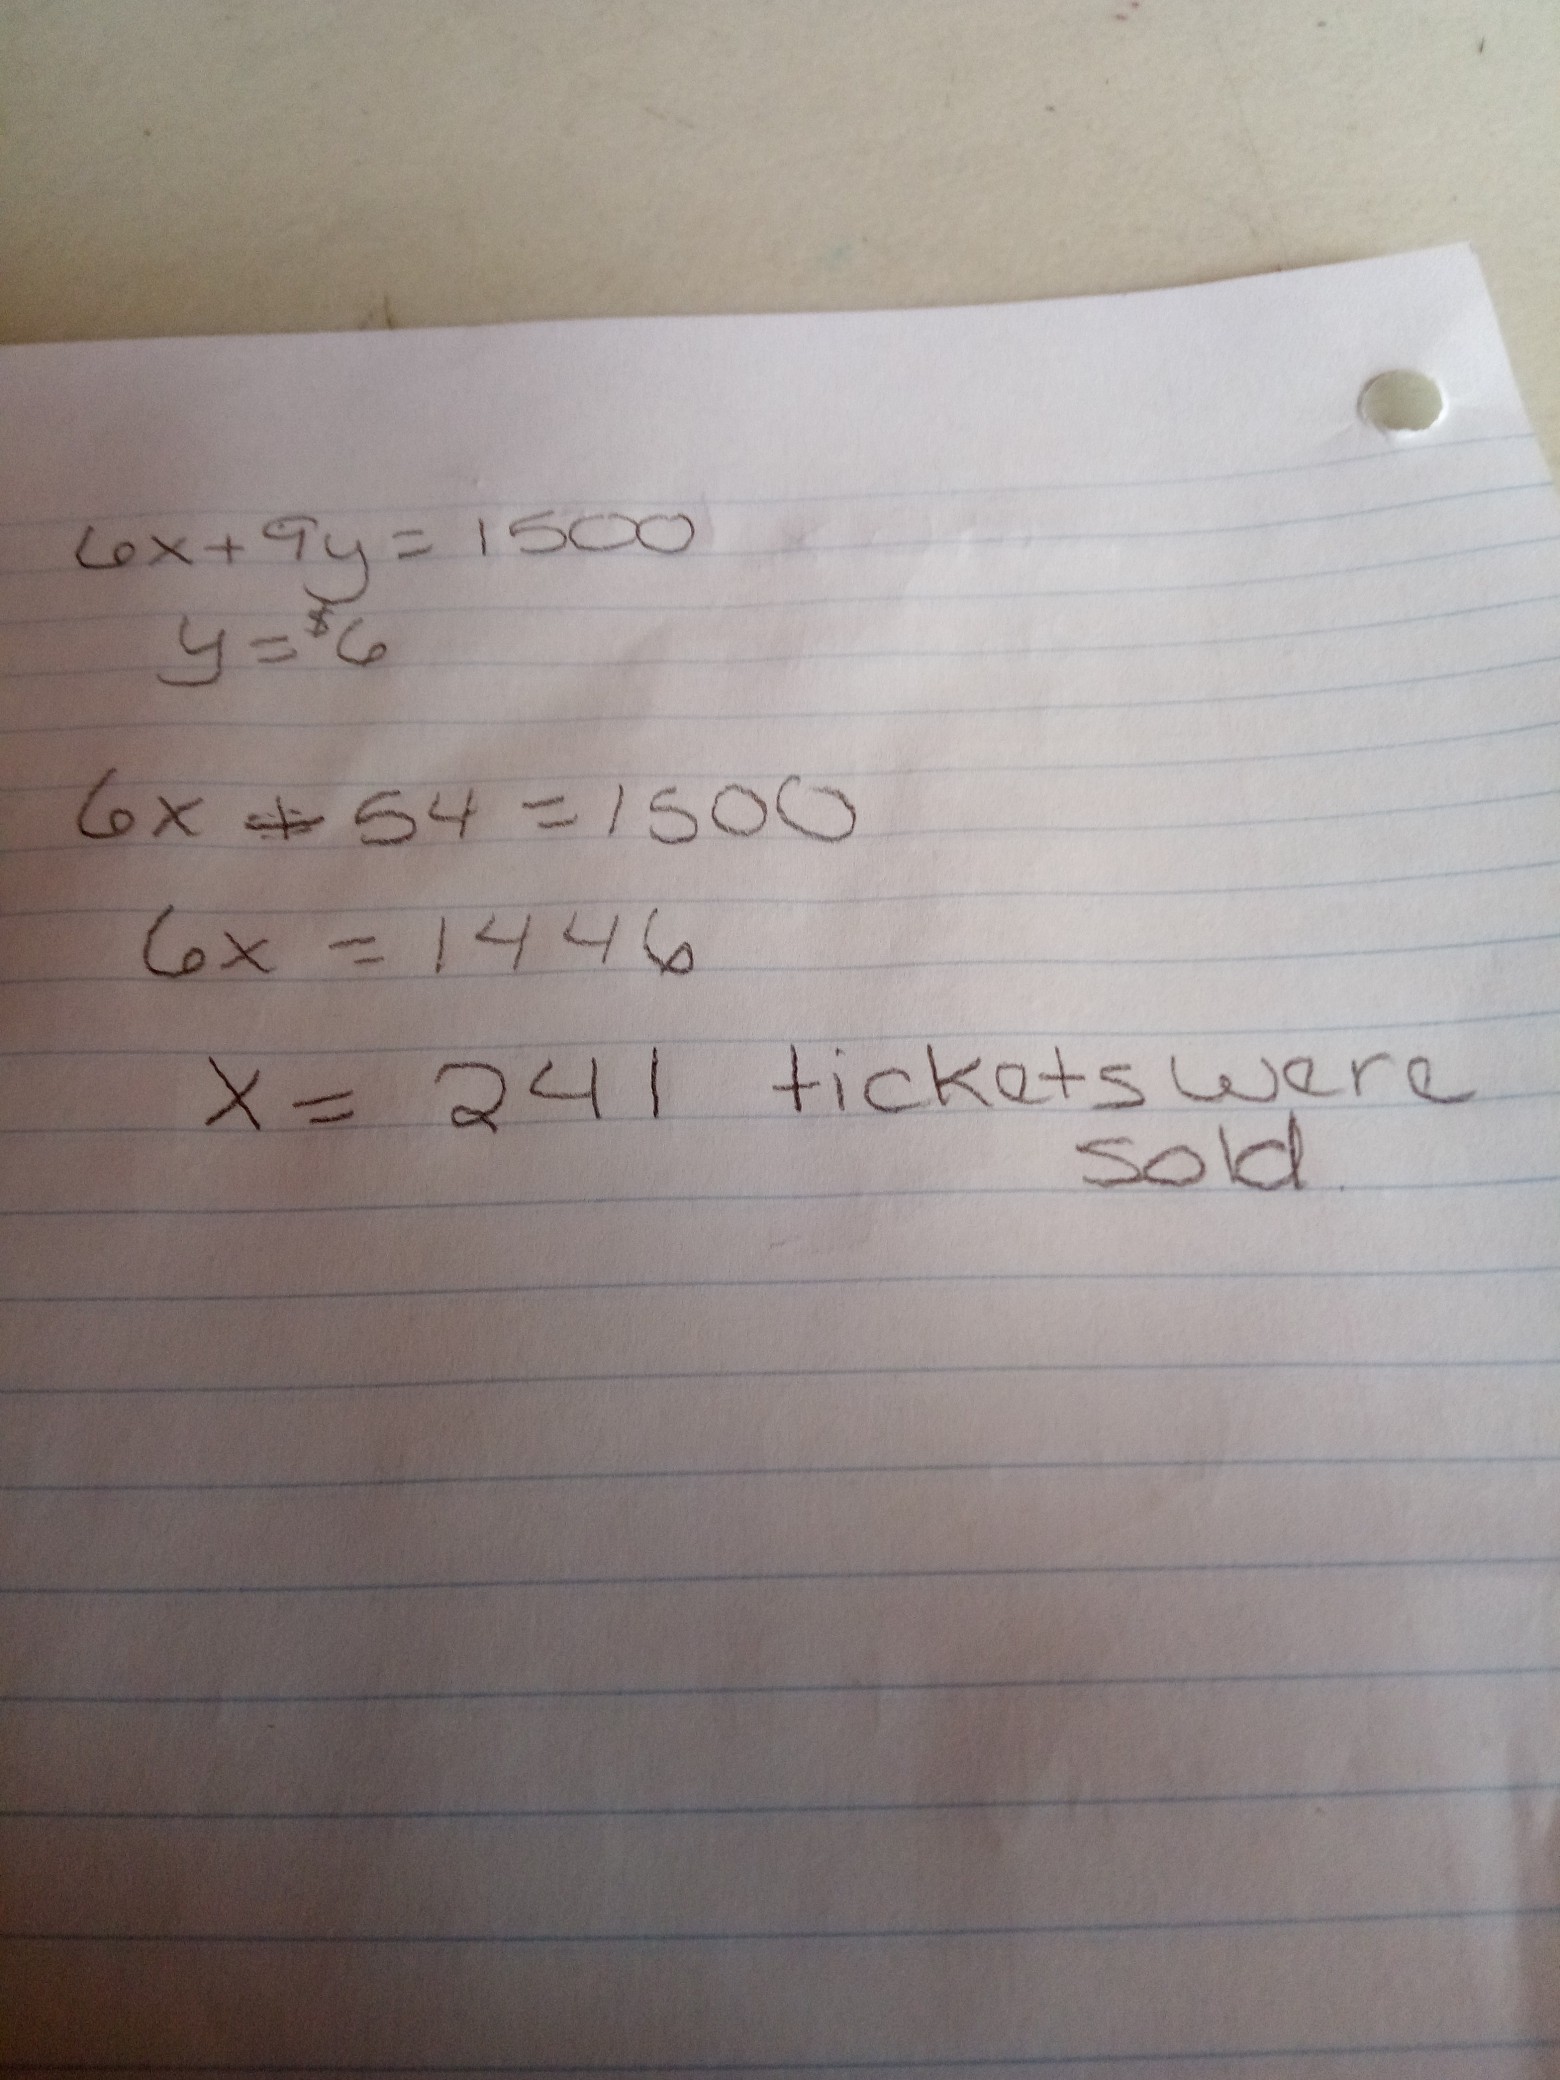 6x+9y=1500
y=$6
6x + 54 = 1500
6x = 1446
x = 241 tickets were
sold.